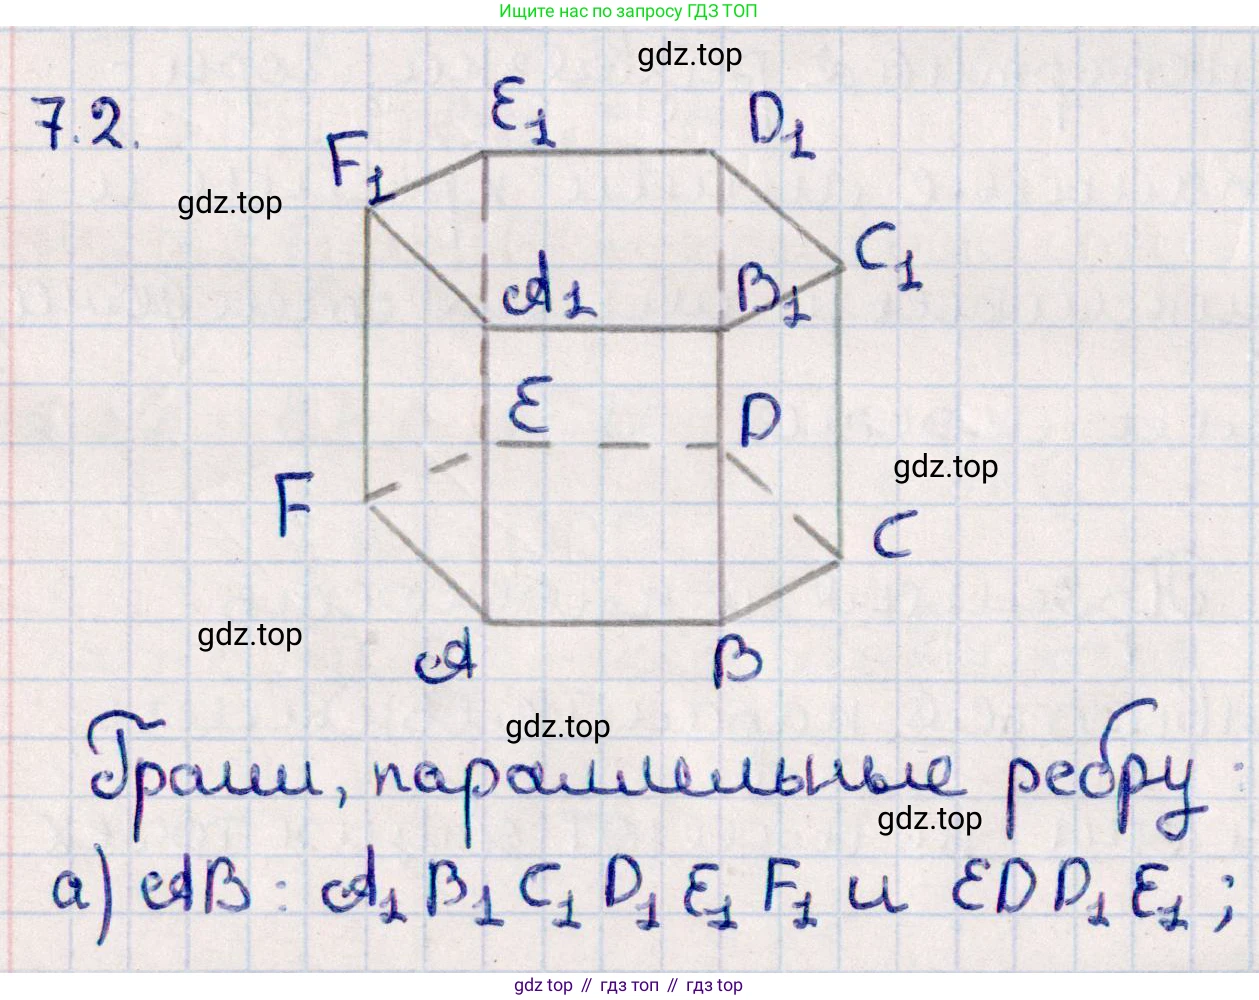 Ищите нас по запросу ГДЗ ТОП
gdz.top
7.2.
E₁
D₁
F₁
gdz.top
C₁
A₁
B₁
E
D
gdz.top
F
C
gdz.top
A
B
gdz.top
Грани, параллельные ребру:
gdz.top
а) AB: A₁B₁C₁D₁E₁F₁ и EDD₁E₁;
gdz top // гдз топ // gdz top